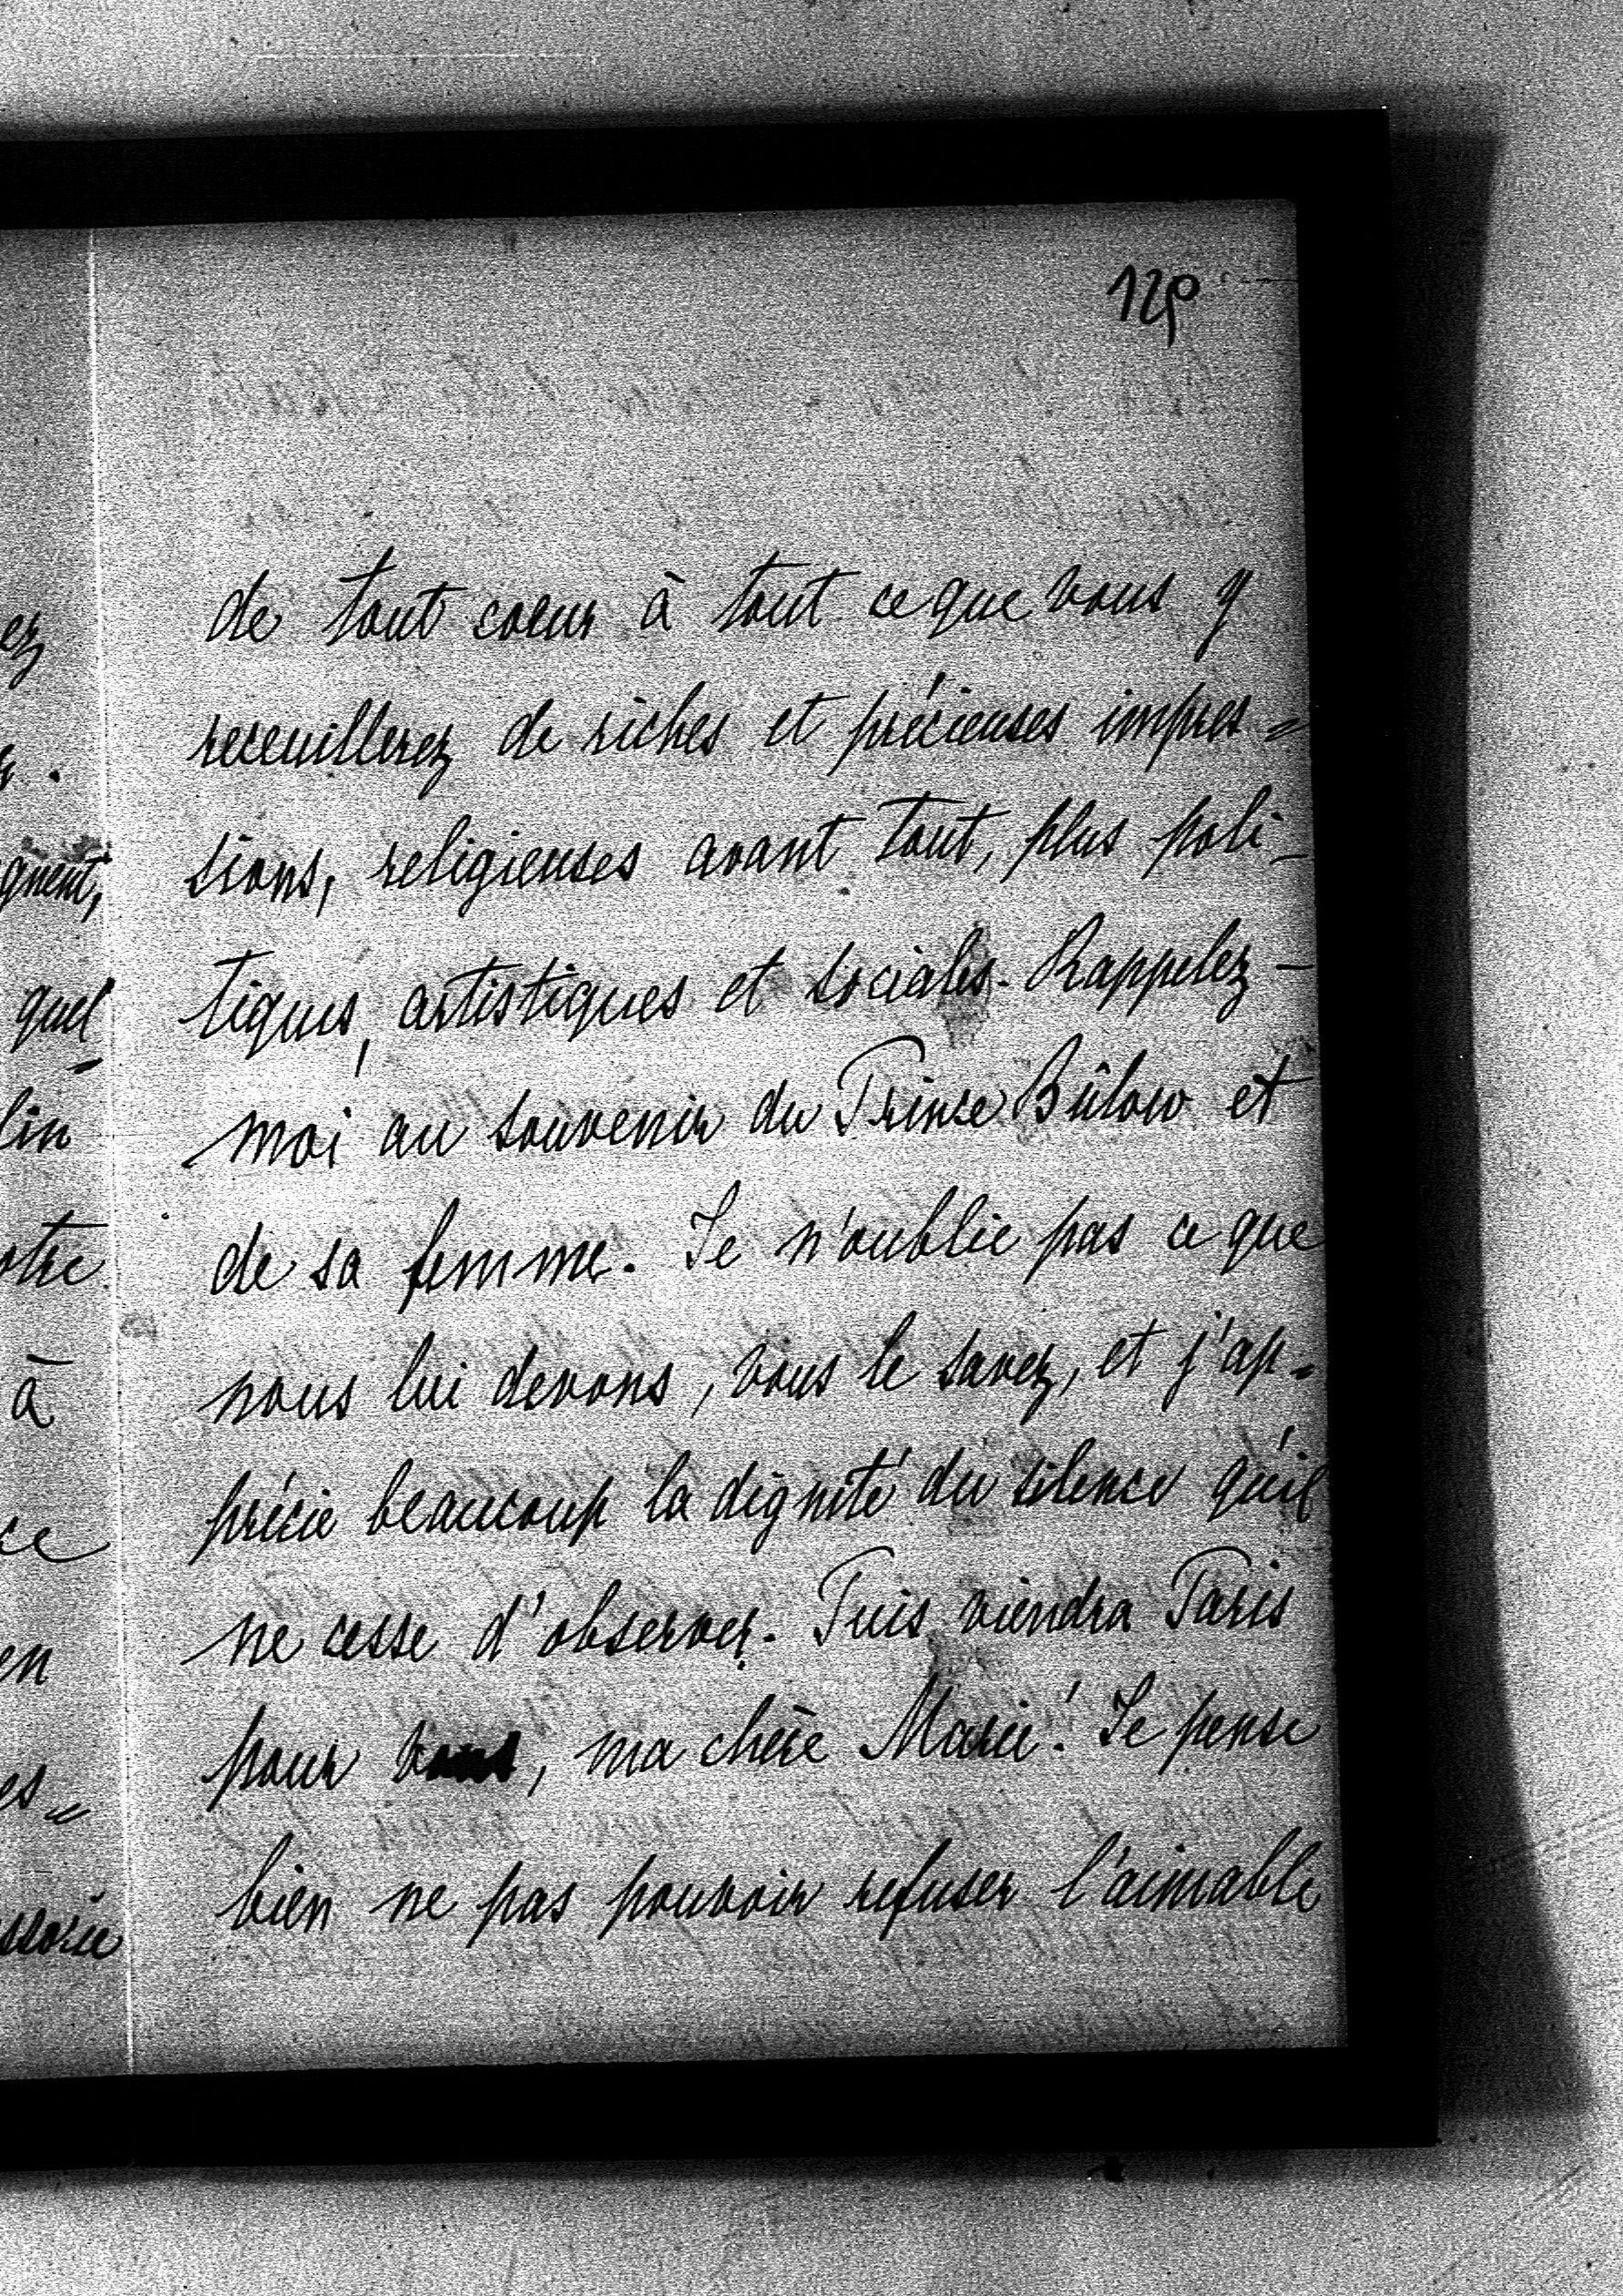 129
de tout coeur à tout ce que vous y
receuillerez de riches et précieuses impres=
sions, religieuses avant tout, plus poli-
tiques, artistiques et sociales. Rappelez-
moi au souvenir du Prince Bülow et
de sa femme. Je n'oublie pas ce que
nous lui devons, vous le savez, et j'ap=
précie beaucoup la dignité du silence qu'il
ne cesse d'observer. Puis viendra Paris
pour vous, ma chère Marie! Je pense
bien ne pas pouvoir refuser l'aimable
ez
gnent,
quel
lin
otre
à
ce
en
es=